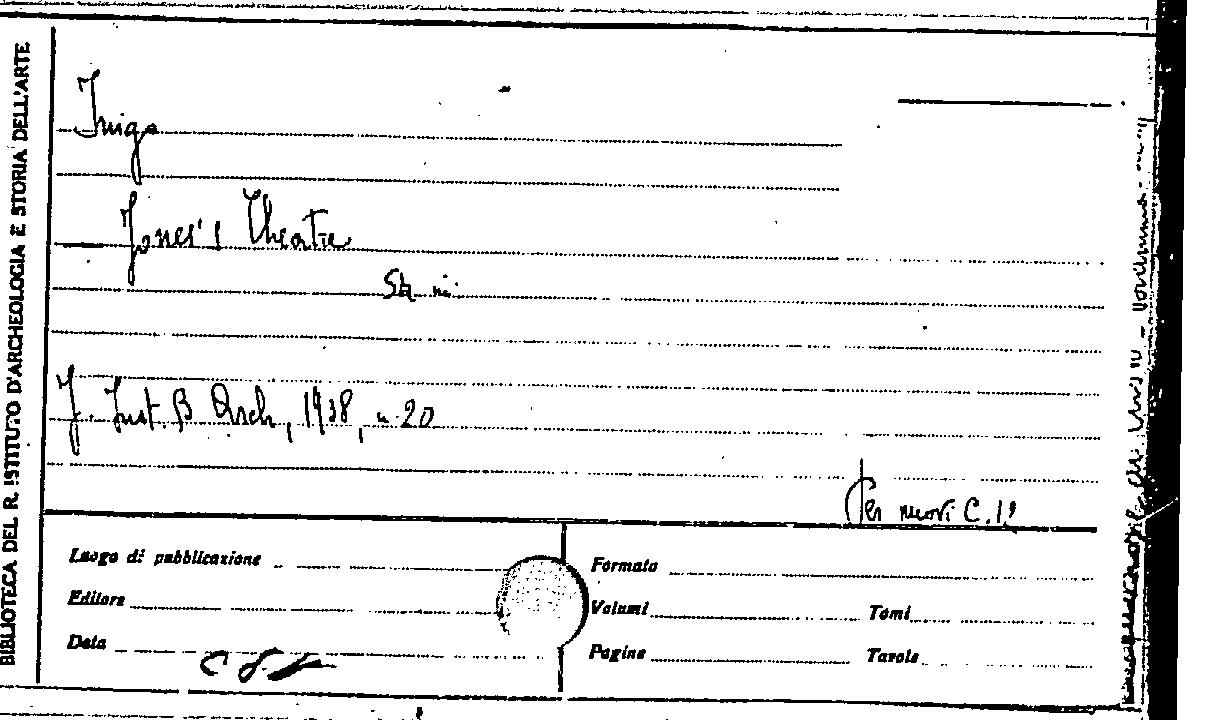 BIBLIOTECA DEL R. ISTITUTO D'ARCHEOLOGIA E STORIA DELL'ARTE
Inigo
Jones's Theatre
J. Inst. B Arch, 1938, n 20
Per nuovi C.
Luogo di pubblicazione
Editore
Data
Formato
Volumi Tomi
Pagine Tavole